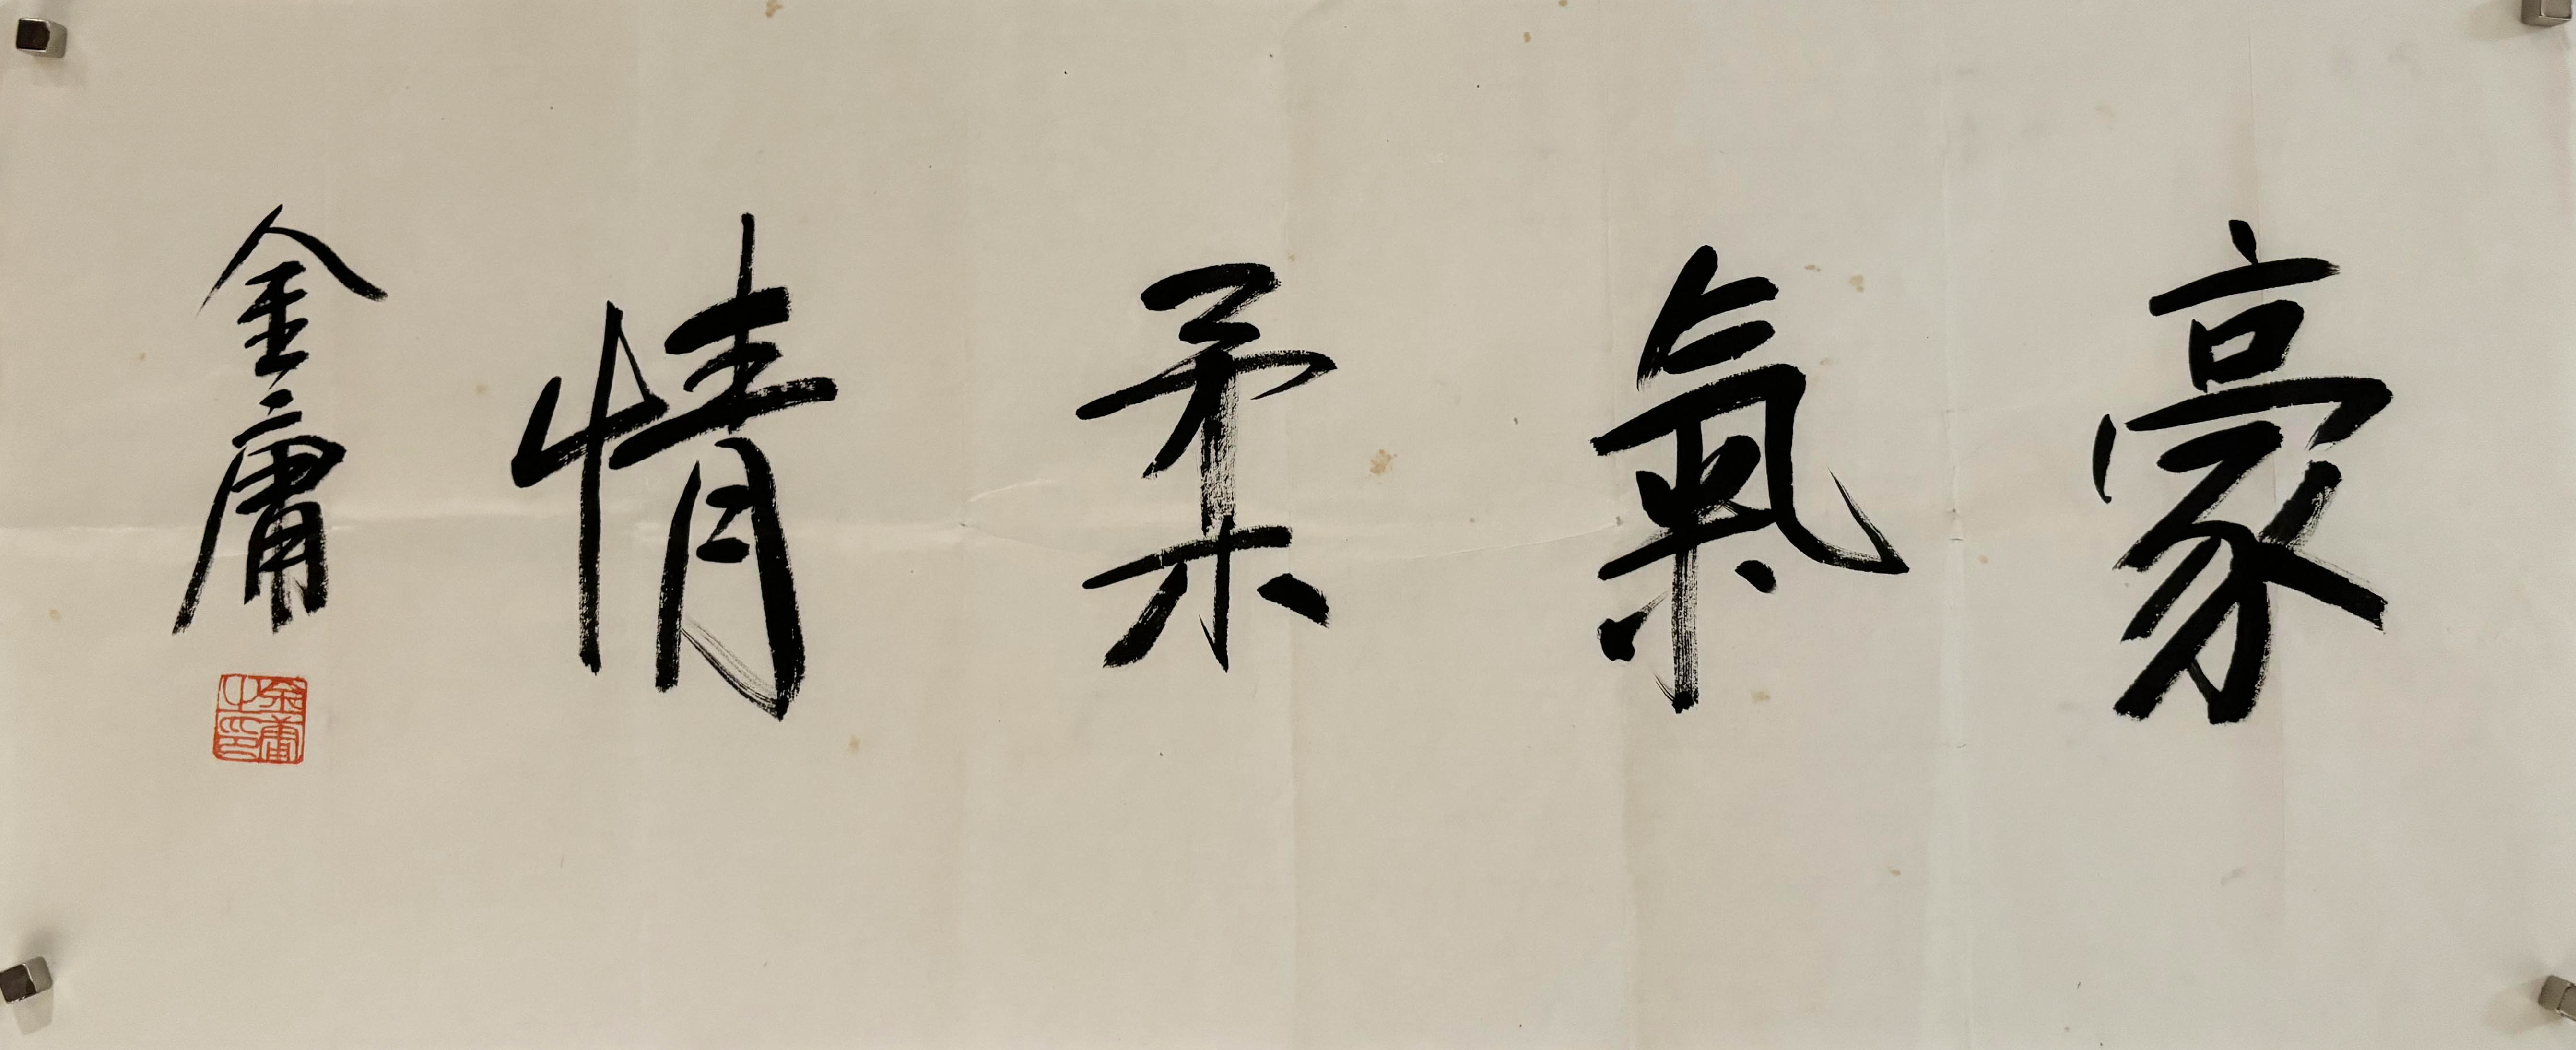 豪氣柔情
金庸
金庸之印